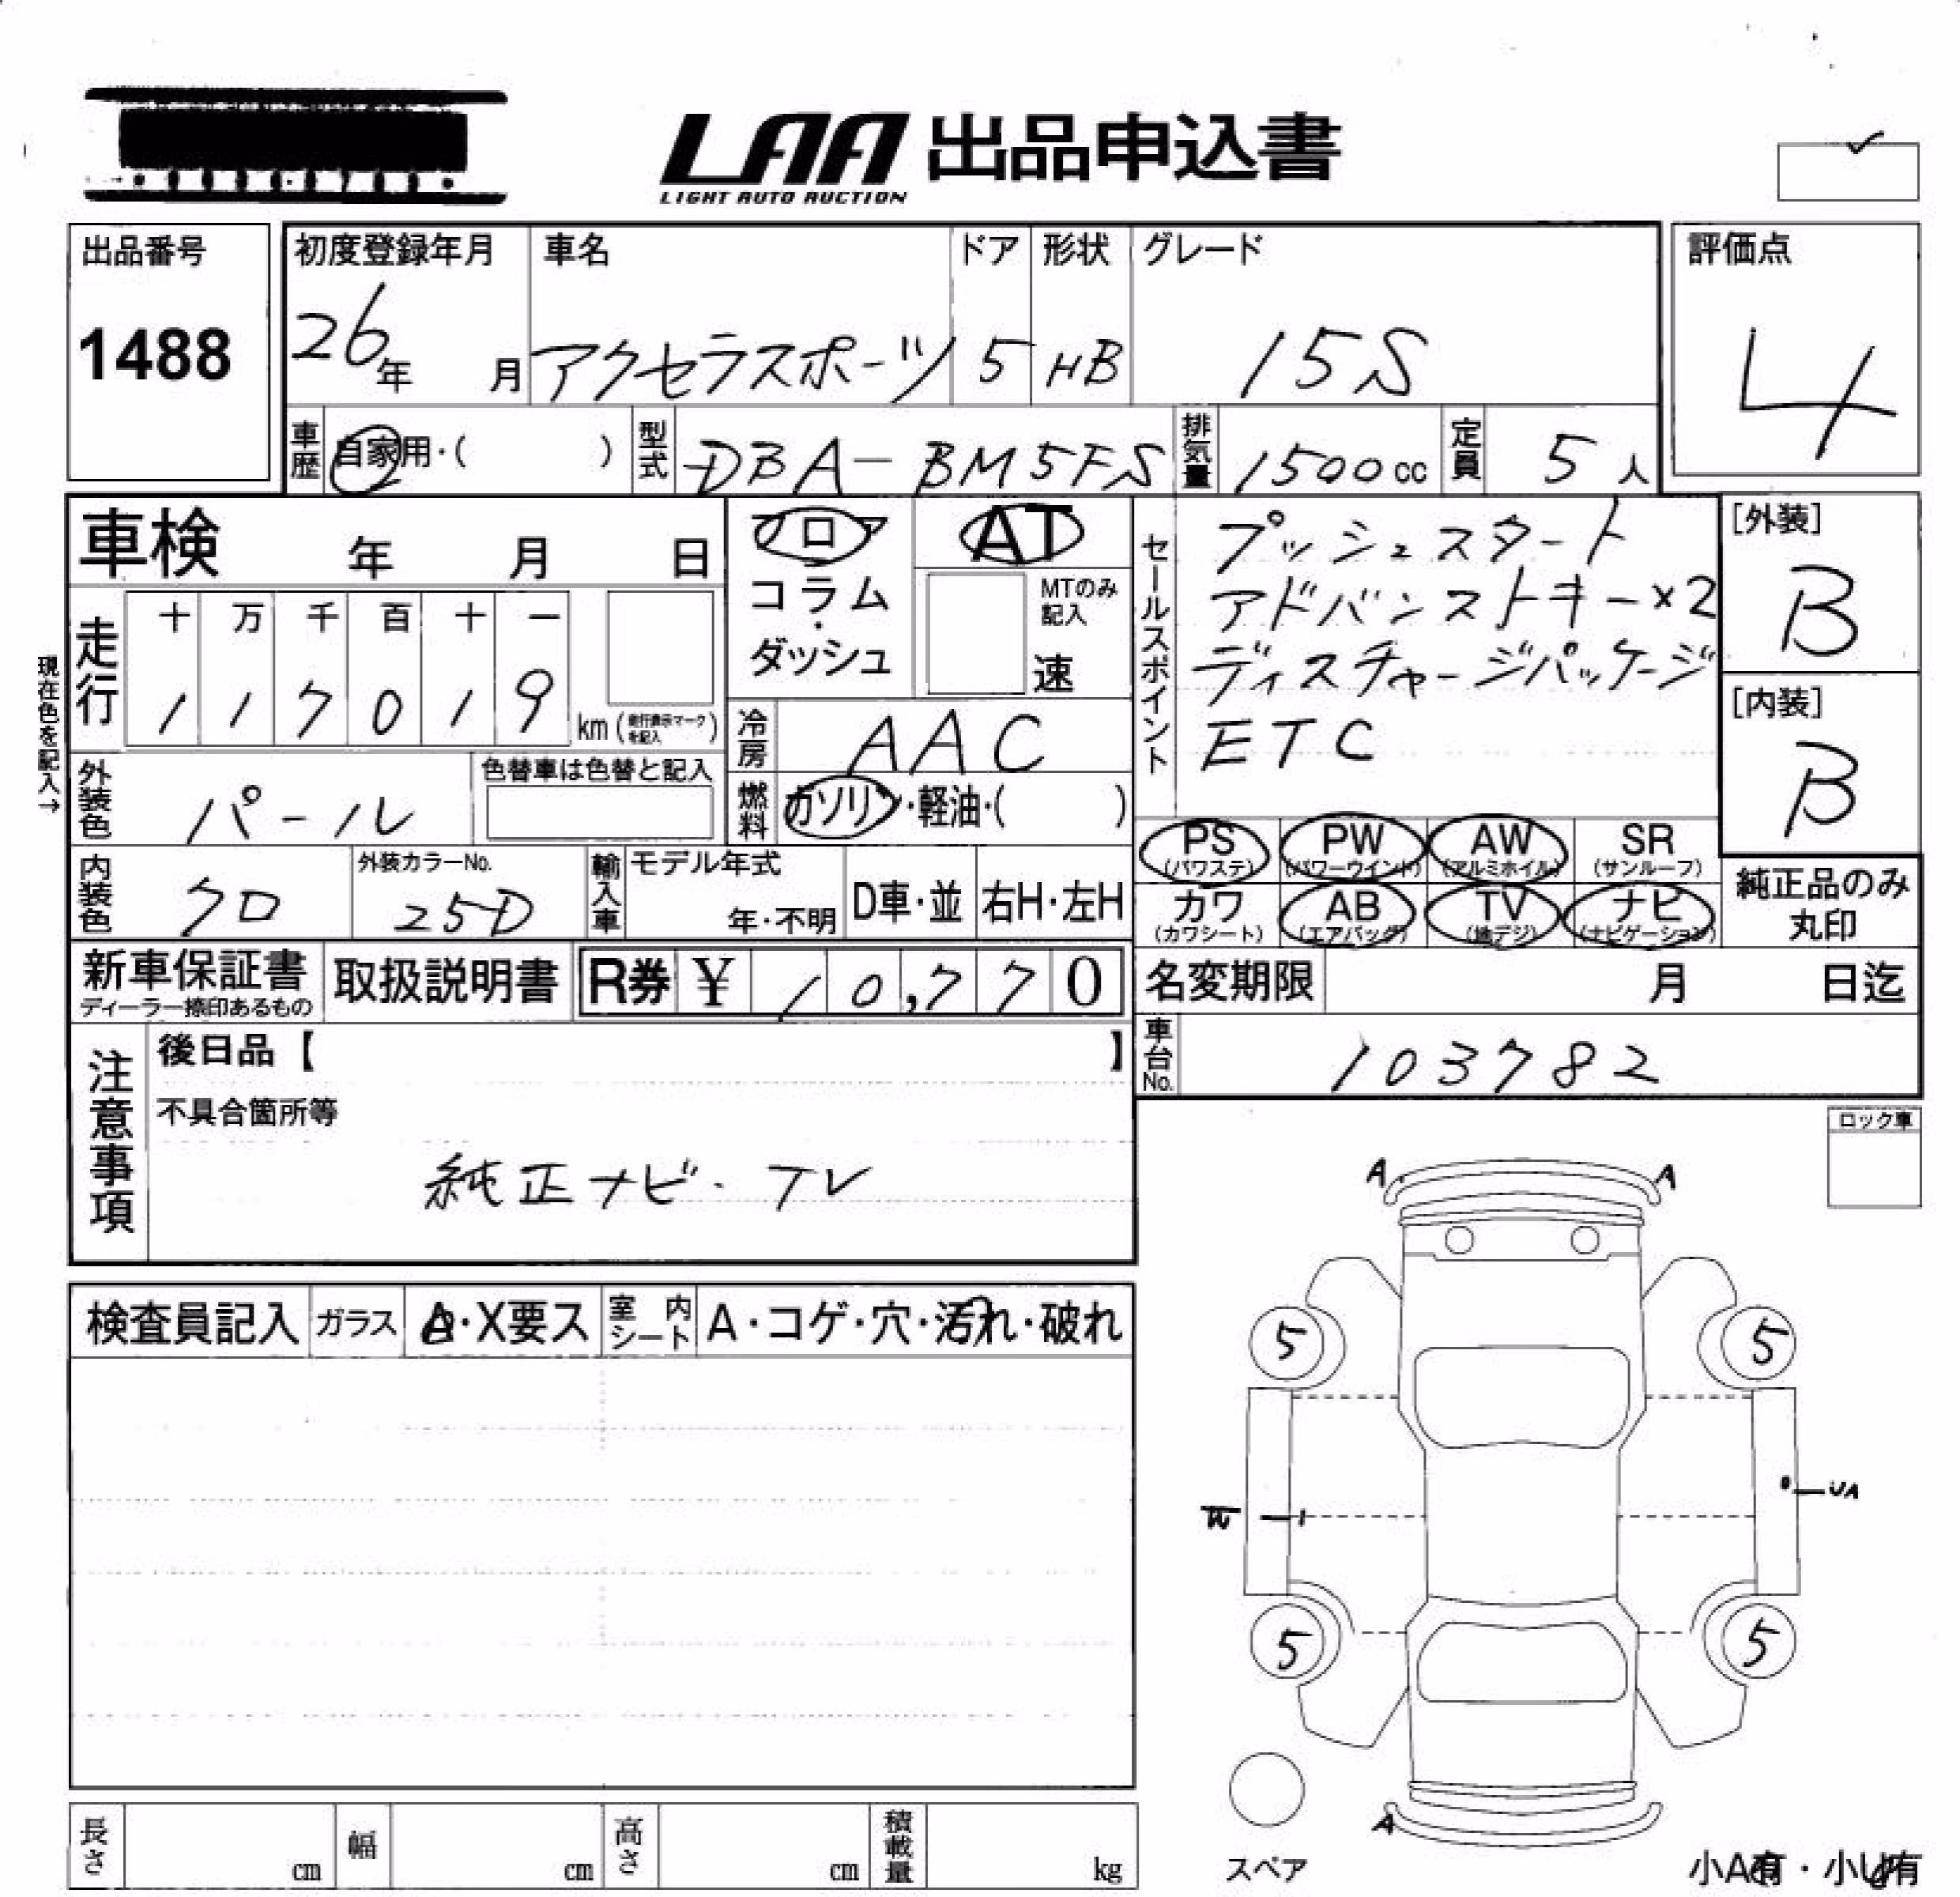 LAA 出品申込書
LIGHT AUTO AUCTION
出品番号
1488
初度登録年月
26年 月
車名
アクセラスポーツ
ドア
5
形状
HB
グレード
15S
評価点
4
車歴
自家用・( )
型式
DBA-BM5FS
排気量
1500cc
定員
5人
車検 年 月 日
フロア
コラム・ダッシュ
AT
MTのみ記入
速
セールスポイント
プッシュスタート
アドバンストキー×2
ディスチャージパッケージ
ETC
[外装]
B
[内装]
B
現在色を記入→
走行
十 万 千 百 十 一
1 1 7 0 1 9 km (走行表示マークを記入)
冷房
AAC
外装色
パール
色替車は色替と記入
燃料
ガソリン・軽油・( )
PS (パワステ)
PW (パワーウインド)
AW (アルミホイル)
SR (サンルーフ)
内装色
クロ
外装カラーNo.
25D
輸入車
モデル年式
年・不明
D車・並
右H・左H
カワ (カワシート)
AB (エアバッグ)
TV (地デジ)
ナビ (ナビゲーション)
純正品のみ丸印
新車保証書
ディーラー捺印あるもの
取扱説明書
R券 ¥ 10,770
名変期限 月 日迄
車台No.
103782
注意事項
後日品【 】
不具合箇所等
純正ナビ・TV
ロック車
A A
検査員記入
ガラス
A・X要ス
室内シート
A・コゲ・穴・汚れ・破れ
5 5
UA
W
5 5
A
スペア
小A有・小U有
長さ cm
幅 cm
高さ cm
積載量 kg